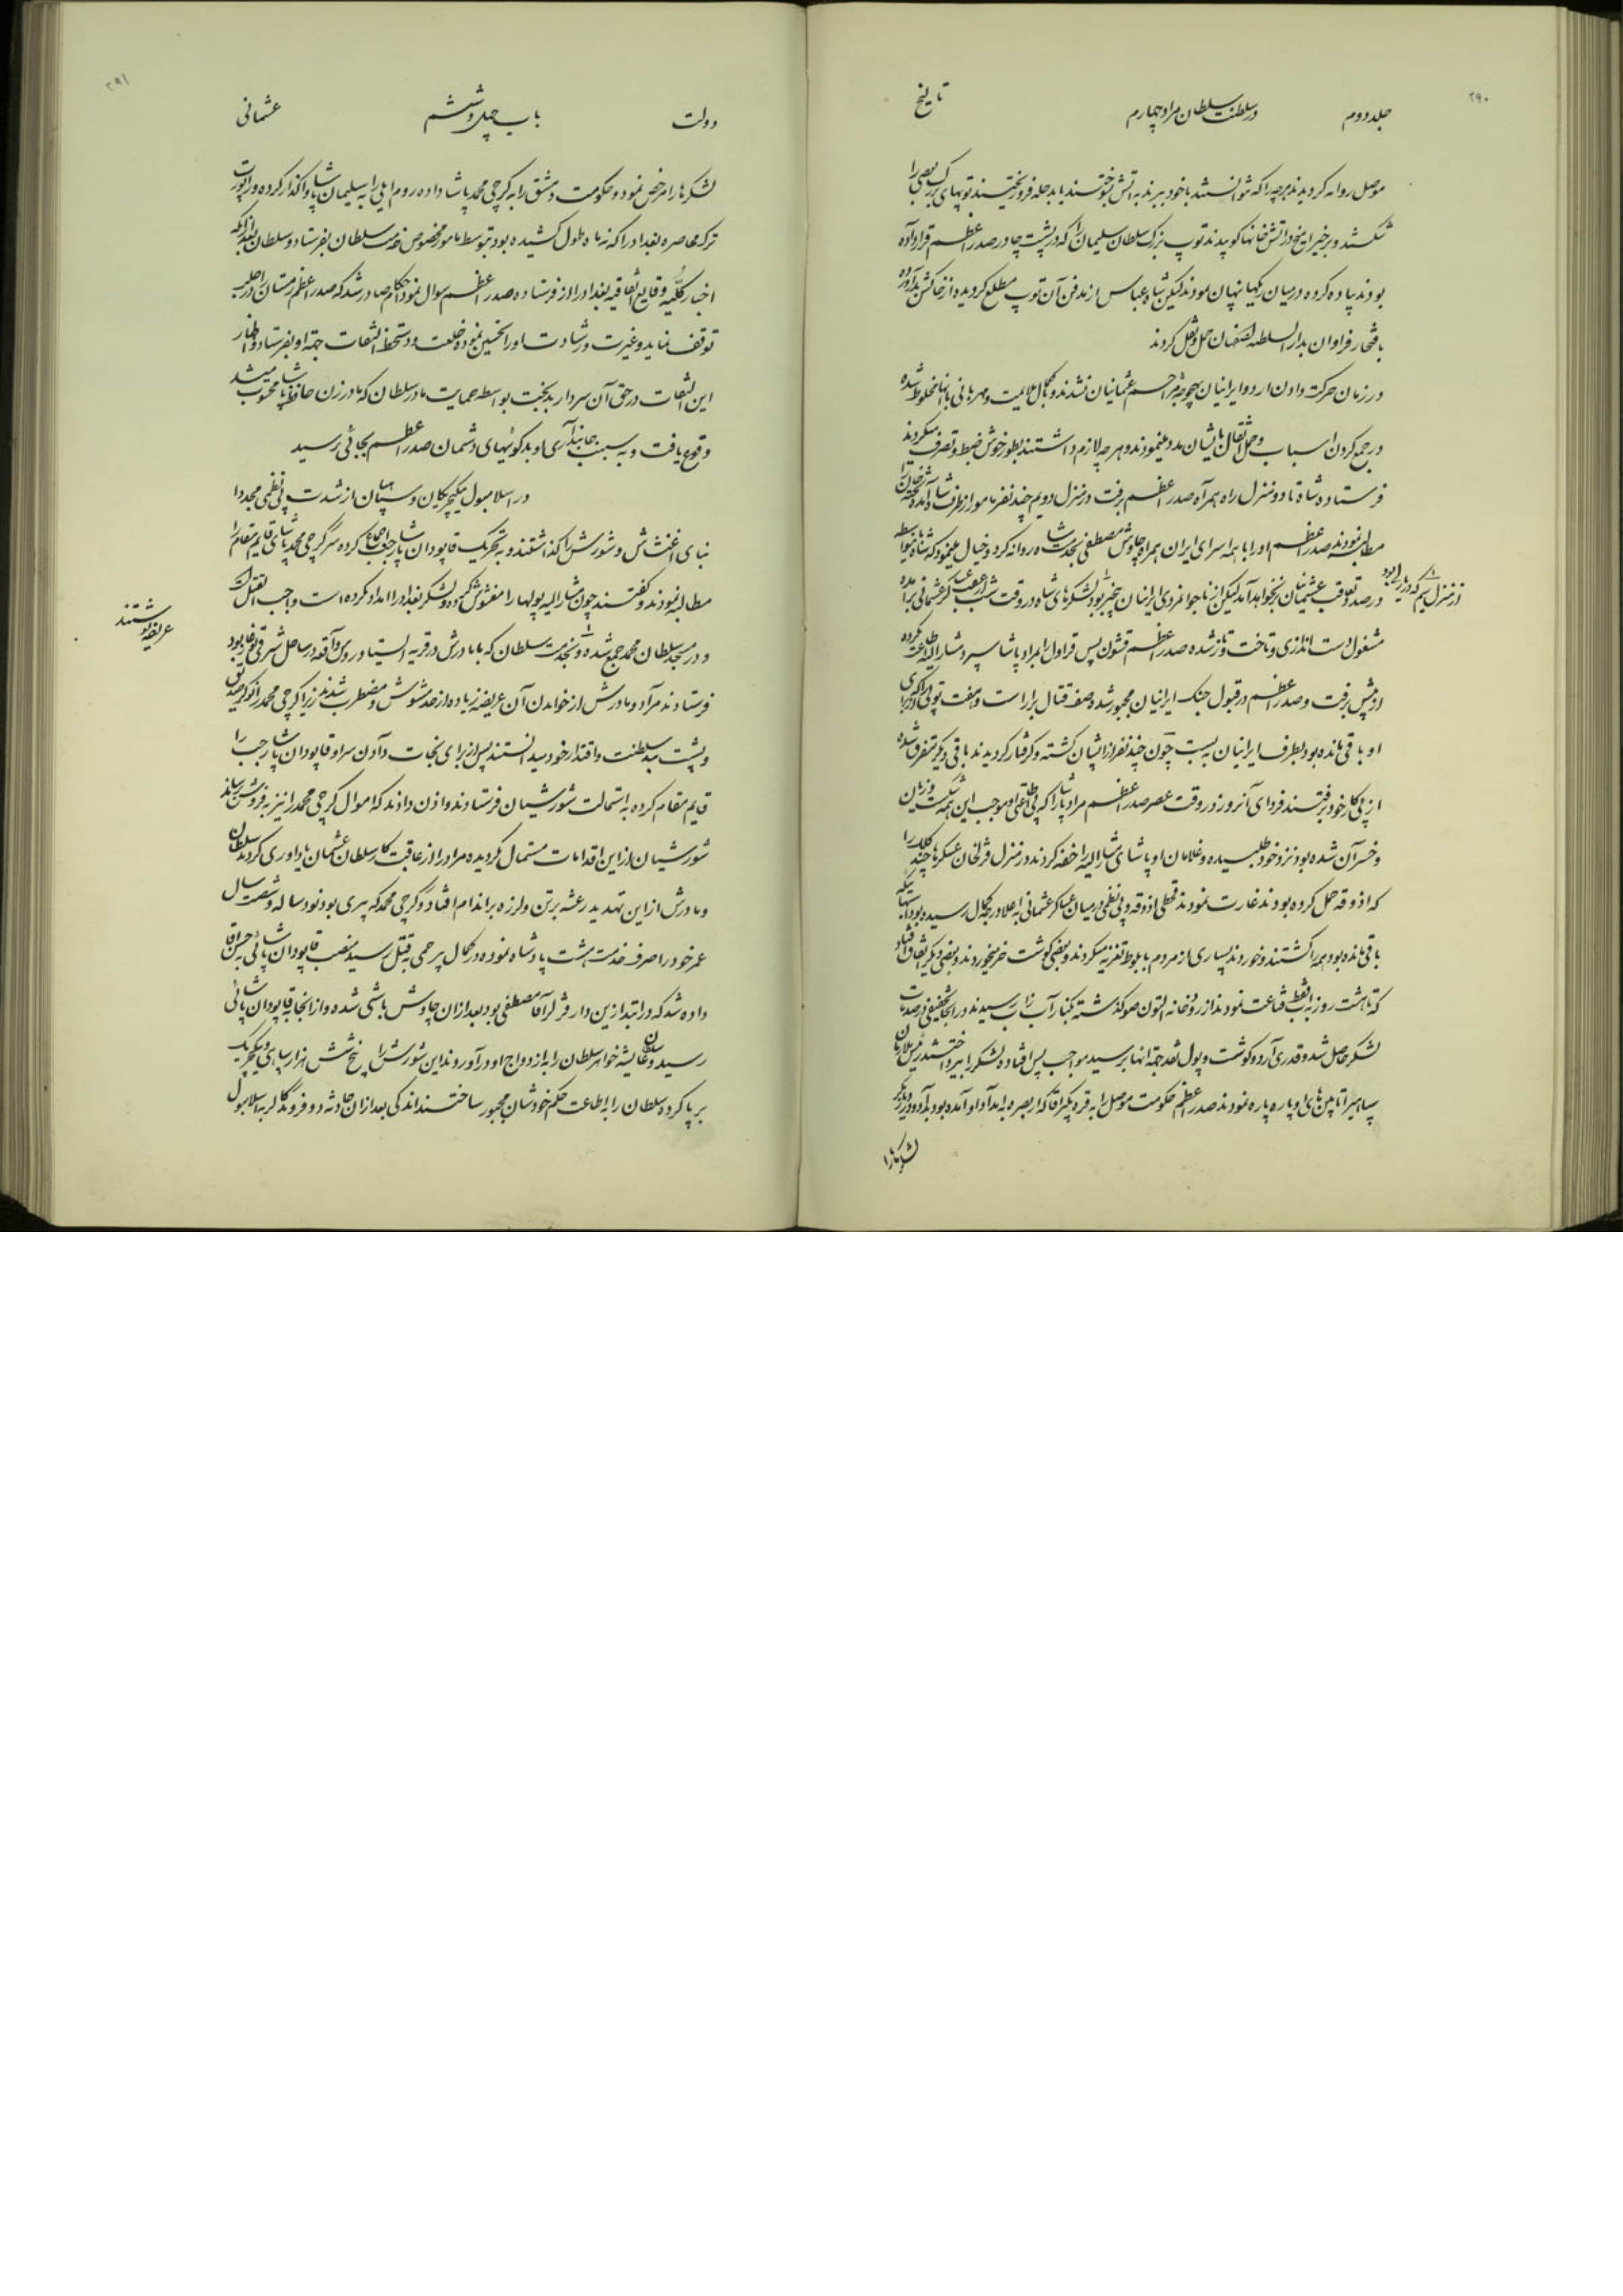 ۲۹۰
جلد دوم در سلطنت سلطان مراد چهارم تاریخ
موصل روانه کردیدند هرچه را که نتوانستند با خود ببرند به آتش سوختند یا بدجله فرو ریختند توپهای بزرک بعضی را
شکستند و برخی را میخ در آتش خانها کوبیدند توپ بزرک سلطان سلیمان را که در پشت چادر صدر اعظم قرار داده
بودند پیاده کرده در میان ریکها پنهان نمودند لیکن شاه عباس از مدفن آن توپ مطلع کردیده از خاکش بدر آورده
بافتخار فراوان بدار السلطنه اصفهان حمل و نقل کردند
در زمان حرکت دادن اردو ایرانیان بهیچوجه مزاحم عثمانیان نشدند و بکمال ملایمت و مهربانی با آنها مخلوط شده
در جمع کردن اسباب و حمل اثقال بایشان مدد مینمودند و هر چه لازم داشتند بطور خوش ضبط و تصرف میکردند
فرستاده شاه تا دو منزل راه همراه صدر اعظم برفت در منزل دویم چند نفر مامور از طرف شاه آمده
مطالبه نمودند صدر اعظم او را با همه اسرای ایران همراه چاوش مصطفی بخدمت شاه روانه کرد و خیال مینمود که شاه
در صدد تعاقب عثمانیان نخواهد آمد لیکن از ناجوانمردی ایرانیان بیخبر بود لشکرهای شاه در وقت شب از عقب لشکر عثمانی برآمده
از منزل سیم که در
مشغول دست اندازی و تاخت و تاز شده صدر اعظم قشون پس قراول را بمراد پاشا سپرد مشار الیه
از پیش برفت و صدر اعظم در قبول جنک ایرانیان مجبور شده صف قتال بیاراست و هفت توپی که از برای
او باقی مانده بود بطرف ایرانیان به بست چون چند نفر از ایشان کشته و کرفتار کردیدند باقی دیکر متفرق شده
از پی کار خود برفتند فردای آنروز در وقت عصر صدر اعظم مراد پاشا را که موجب این همه شکست و زیان
و خسران شده بود نزد خود طلبیده و غلامان او پاشای مشار الیه را خفه کردند در منزل عسکرها چند کلک را
که آذوقه حمل کرده بودند غارت نمودند قحطی آذوقه و بی نظمی در میان عساکر عثمانی باعلا درجه کمال رسیده بود
باقی مانده بود همه را کشتند و خوردند بسیاری از مردم با بلوط تعزیه میکردند و بعضی کوشت خر میخوردند و بعضی دیکر اتفاق افتاد
که تا هشت روز به آب فقط قناعت نمودند از رودخانه التون صو کذشته بکنار آب زاب رسیدند در آنجا تخفیفی در صدمات
لشکر حاصل شد و قدری آرد و کوشت و پول نقد جهة آنها برسید مواجب پس افتاده لشکر را بپرداختند
سپاهیرا تا پین های او پاره پاره نمودند صدر اعظم حکومت موصل را به قره بکر آقا که از بصره به امداد او آمده بود بداد
لشکرها را
۲۹۱
دولت باب چهل و ششم عثمانی
لشکرها را مرخص نمود و حکومت دمشق را به کرجی محمد پاشا داده روم ایلی را به سلیمان پاشا واکذار کرده و راپورت
ترک محاصره بغداد را که نه ماه طول کشیده بود بتوسط مامور مخصوص خدمت سلطان بفرستاد و سلطان بعد از آنکه
اخبار کلیه وقایع اتفاقیه بغداد را از فرستاده صدر اعظم سوال نمود احکام صادر شد که صدر اعظم زمستان را در حلب
توقف نماید و غیرت و رشادت او را تحسین نموده خلعت و دستخط التفات جهة او بفرستاد و اظهار
این التفات در حق آن سردار بدبخت بواسطه حمایت مادر سلطان که مادر زن حافظ پاشا محسوب میشد
وقوع یافت و به سبب جانبداری او بدکوئیهای دشمنان صدر اعظم بجائی نرسید
در اسلامبول ینکیچریکان و سپاهیان از شدت بی نظمی مجددا
بنای اغتشاش و شورش را کذاشتند و به تحریک قاپودان پاشا رجب اجماع کرده سر کرجی محمد پاشای قایم مقام را
مطالبه نمودند و کفتند چون مشار الیه پولها را مغشوش کرده و لشکر بغداد را امداد نکرده است واجب القتل است
و در مسجد سلطان محمد جمع شده و بخدمت سلطان که با مادرش در قریه استاوروس واقعه در ساحل شرقی بغاز بود
عریضه نوشتند
فرستادند مراد و مادرش از خواندن آن عریضه زیاده از حد مشوش و مضطرب شدند زیرا کرجی محمد را نوکر صدیق
و پشت بند سلطنت و اقتدار خود میدانستند پس از برای نجات دادن سر او قاپودان پاشا رجب را
قایم مقام کرده به استمالت شورشیان فرستادند و اذن دادند که اموال کرجی محمد را نیز به فروش برسانند
شورشیان از این اقدامات مستمال نکردیده مراد را از عاقبت کار سلطان عثمان یادآوری کردند سلطان
و مادرش از این تهدید رعشه بر تن و لرزه بر اندام افتاد و کرجی محمد که پیری بود نود ساله و شصت سال
عمر خود را صرف خدمت هشت پادشاه نموده در کمال بیرحمی بقتل رسید منصب قاپودان پاشائی به حسن آقا
داده شد که در ابتدا زین دار قزلر آقا مصطفی بود بعد از آن چاوش باشی شده و از آنجا به قاپودان پاشائی
رسید و عایشه خواهر سلطان را به ازدواج او در آوردند این شورش را پنج شش هزار سپاهی و ینکیچریک
بر پا کرده سلطان را باطاعت حکم خودشان مجبور ساختند اندکی بعد از آن حادثه دو فروند کالر به اسلامبول